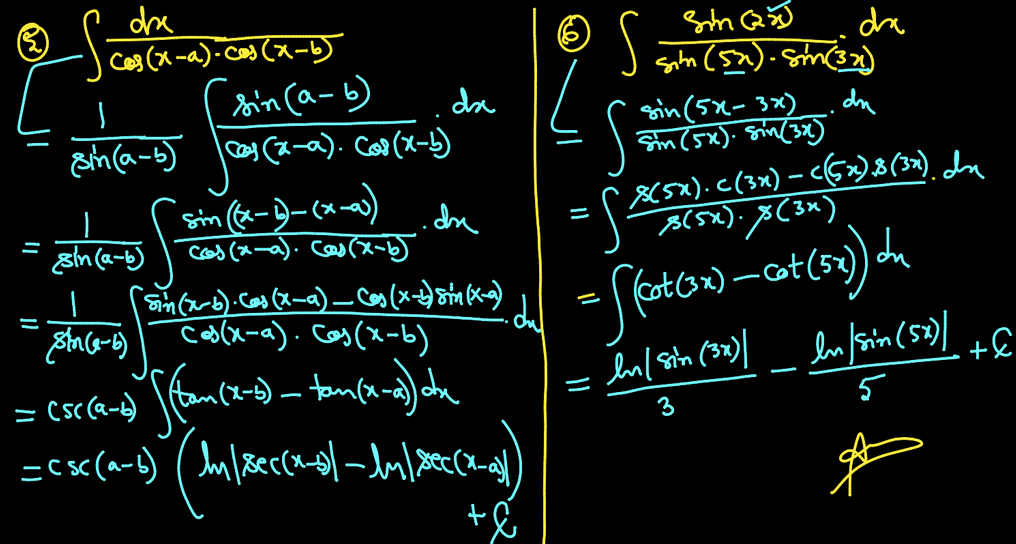 ⑤ ∫ dx / (cos(x-a)·cos(x-b))
= 1/sin(a-b) ∫ sin(a-b) / (cos(x-a)·cos(x-b)) · dx
= 1/sin(a-b) ∫ sin((x-b)-(x-a)) / (cos(x-a)·cos(x-b)) · dx
= 1/sin(a-b) ∫ (sin(x-b)·cos(x-a) - cos(x-b)sin(x-a)) / (cos(x-a)·cos(x-b)) · dx
= csc(a-b) ∫ (tan(x-b) - tan(x-a)) dx
= csc(a-b) (ln|sec(x-b)| - ln|sec(x-a)|)
+ C
⑥ ∫ sin(2x) / (sin(5x)·sin(3x)) · dx
= ∫ sin(5x-3x) / (sin(5x)·sin(3x)) · dx
= ∫ (s(5x)·c(3x) - c(5x)s(3x)) / (s(5x)·s(3x)) · dx
= ∫ (cot(3x) - cot(5x)) dx
= ln|sin(3x)| / 3 - ln|sin(5x)| / 5 + C